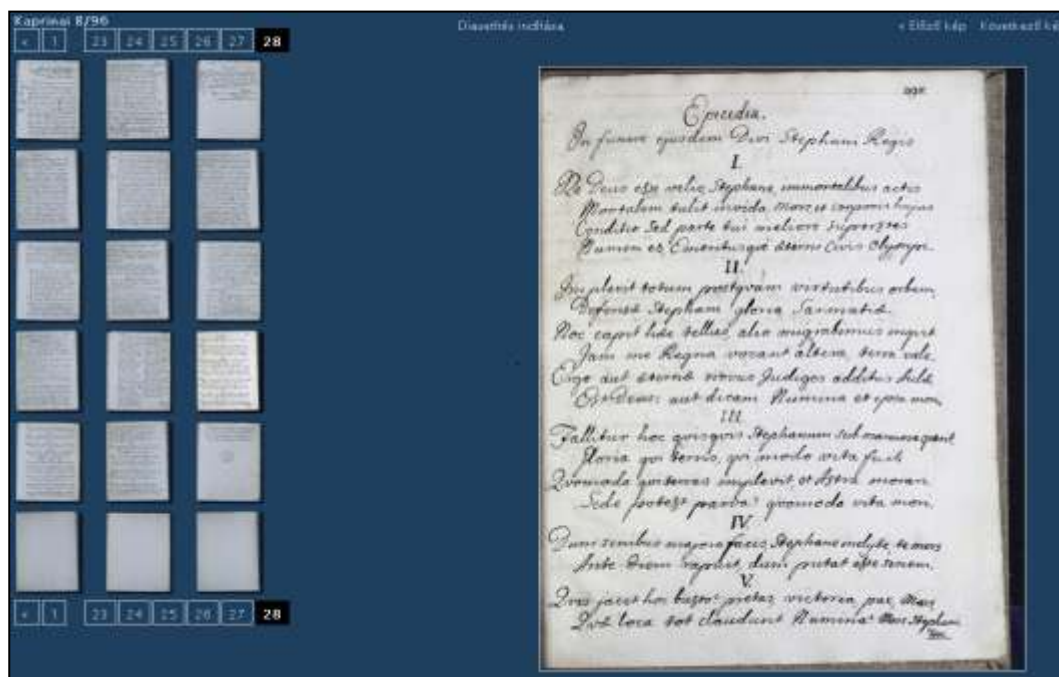 Kaprinai 8/96
« 1 23 24 25 26 27 28
Diavetítés indítása
« Előző kép Következő ké
Epicedia.
In funere ejusdem Divi Stephani Regis
I.
Te Deus esse velit, Stephane, immortalibus actis
Mortalem tulit invida Mors et corporis hujus
Conditio sed parte tui meliore superstes
Numen es, Emeritusque aeterni Civis Olympi.
II.
Implevit totum postquam virtutibus orbem,
Stephani gloria Sarmatiae.
Non capit haec tellus, alio migrabimus inquit
Jam me Regna vocant altera, terra vale.
Ergo aut novus additus
Est Deus: aut dicam Numina et ipsa mori.
III.
Fallitur hoc quisquis Stephanum sub marmore
Gloria qui terris, qui modo vita fuit.
Qvomodo qui terras implevit et Astra
Sede potest parva? qvomodo vita mori.
IV.
Dum senibus majora facis Stephane inclyte, te mors
Ante diem rapuit, dum putat esse senem.
V.
Qvis jacet hoc busto? pietas, victoria, pax, Mars
loca tot claudunt Numina?
« 1 23 24 25 26 27 28